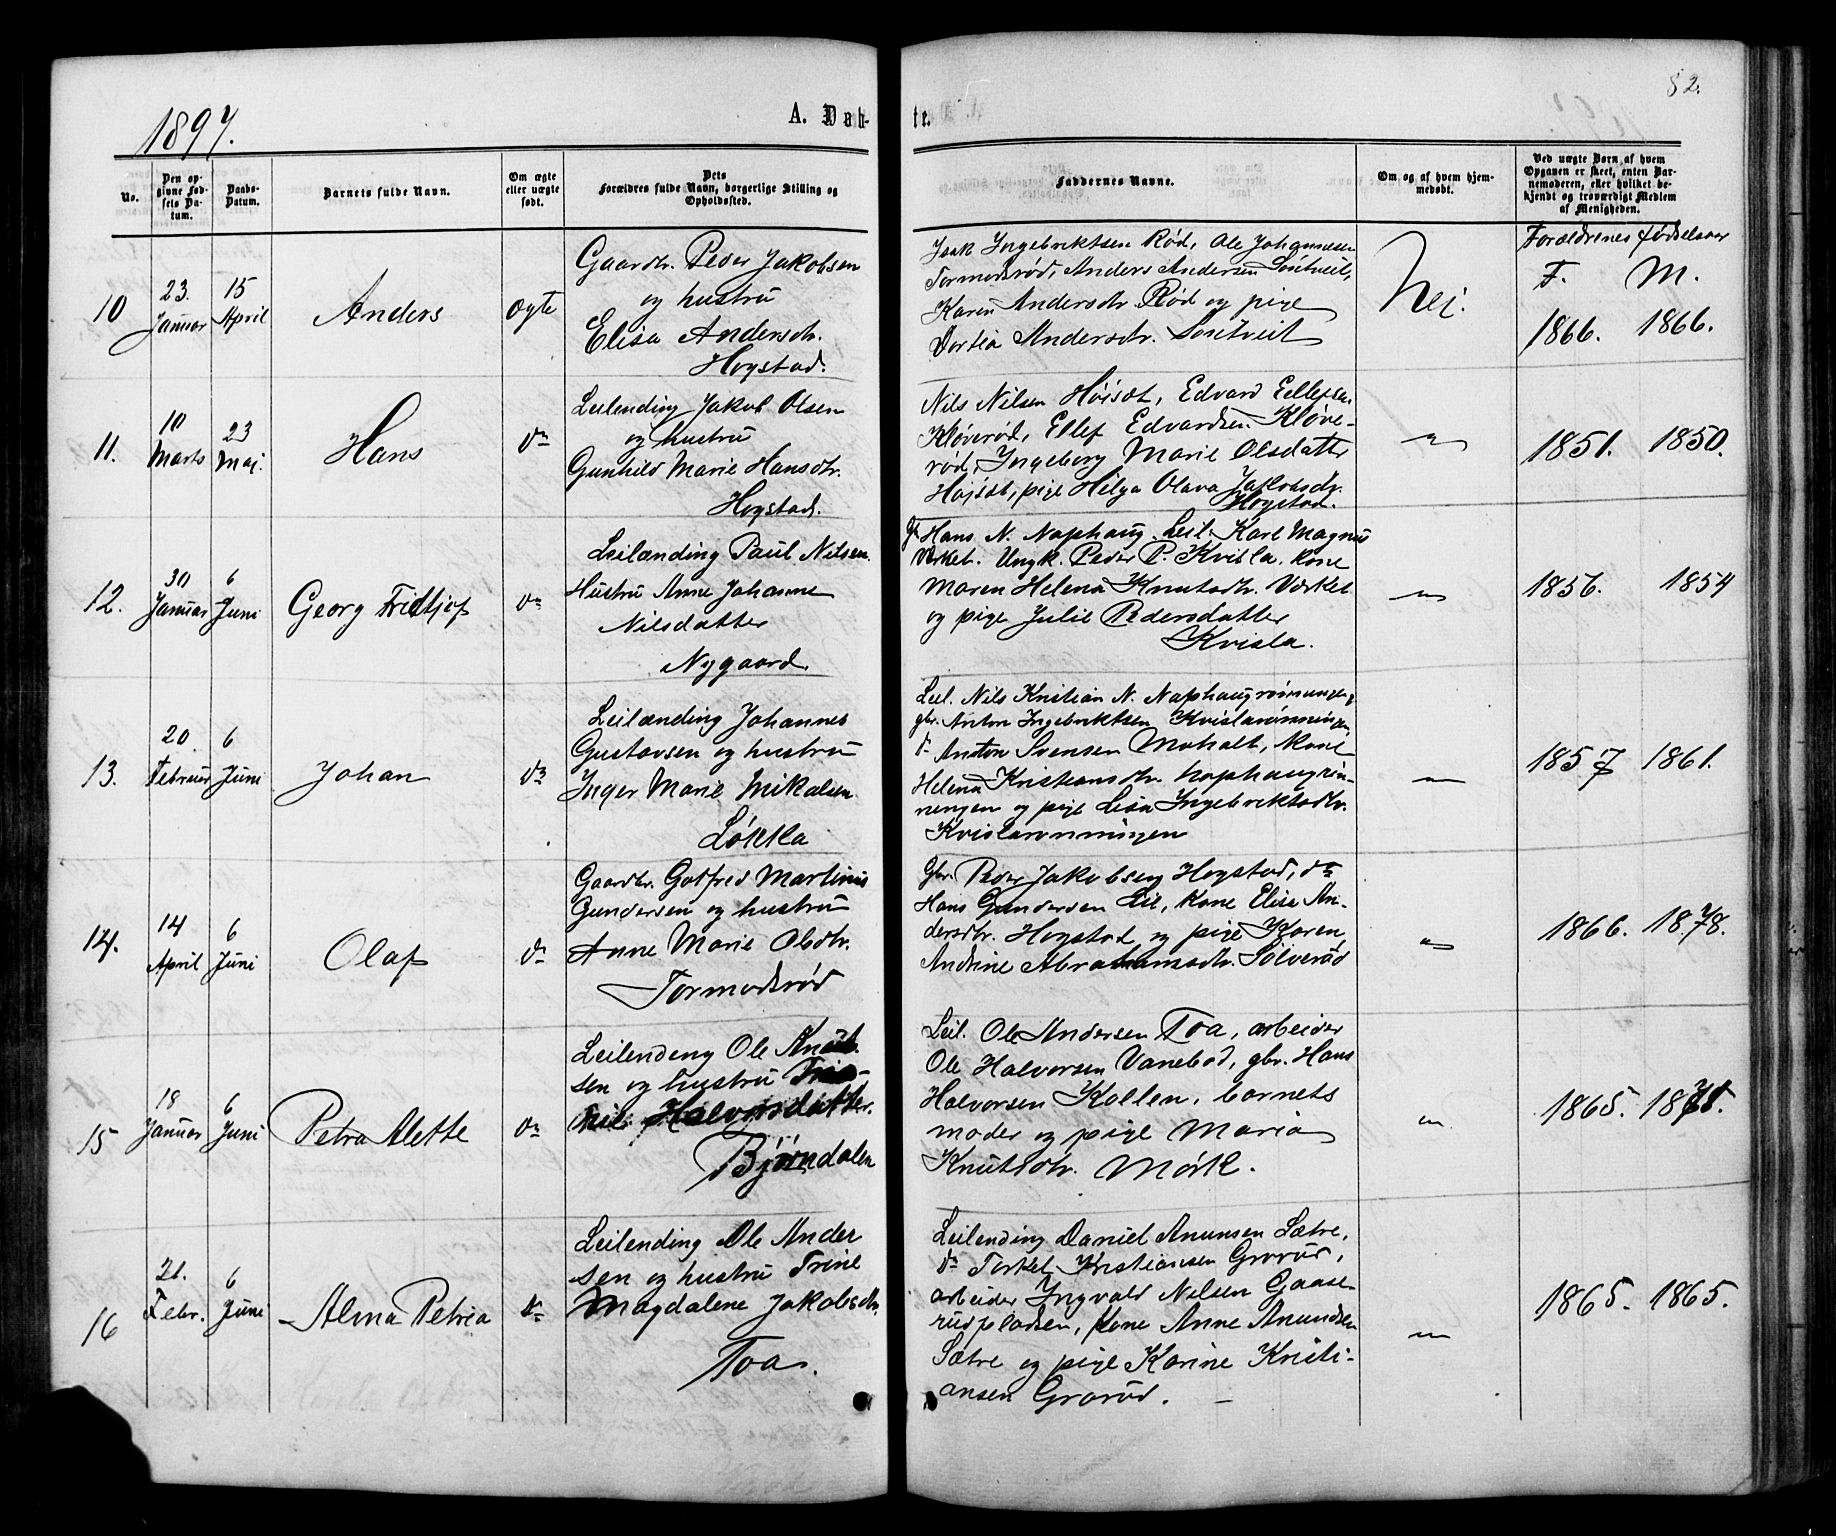 82.
1897.
A. Daab-
te.
No.
Den op-
givne Fød-
sels Da-
tum.
Daabs-
Datum.
Barnets fulde Navn.
Om ægte
eller uægte
født.
Dets
Forældres fulde Navn, borgerlige Stilling og
Opholdssted.
Faddernes Navne.
Om og af hvem hjem-
medøbt.
Ved uægte Børn, af hvem
Opgaven er skeet, enten Bar-
nemoderen, eller hvilket be-
kjendt og troværdigt Medlem
af Menigheden.
Forældrenes fødselsaar
F. M.
10
23.
Januar
15
April
Anders
Ogte
Gaardbr. Peder Jakobsen
og hustru
Elisa Andersdtr.
Hogstad.
Isak Ingebriktsen Rød, Ole Johannesen
Tormodsrød, Anders Andersen Söntveit,
Karen Andersdtr. Rød og pige
Dortia Andersdtr. Söntveit
Nei.
1866. 1866.
11.
10
Marts
23
Mai.
Hans
do
Leilending Jakob Olsen
og hustru
Gunhild Marie Hansdtr.
Hogstad.
Nils Nilsen Höisæt, Edvard Ellefsen
Kløverød, Ellef Edvardsen Kløve-
rød, Ingeborg Marie Olsdatter
Höisæt, pige Helga Olava Jakobsdtr.
Hogstad.
"
1851. 1850.
12.
30
Januar
6
Juni
Georg Fridtjof
do
Leilænding Paul Nilsen
Hustru Anne Johanne
Nilsdatter
Nygaard.
Hans N. Naphaug. Leil. Karl Magnus
Verket. Ungk. Peder P. Kvisla, kone
Maren Helena Knutsdtr. Værket
og pige Julie Pedersdatter
Kvisla.
"
1856. 1854
13.
20
Februar
6
Juni
Johan
do
Leilænding Johannes
Gustavsen og hustru
Inger Marie Mikalsen
Løkka
Leil. Nils Kristian N. Naphaugrønningen
gbr. Anton Ingebriktsen Kvislarønningen
do Anton Svensen Moholt, kone
Helena Kristiansdtr. Naphaugrön-
ningen og pige Lesa Ingebriktsdtr.
Kvislarønningen
"
1857 1861.
14.
14
April
6
Juni
Olaf
do
Gaardbr. Gotfred Martinus
Gundersen og hustru
Anne Marie Olsdtr.
Tormodsrød
Gbr. Peder Jakobsen Hogstad, do
Hans Gundersen Lie, kone Elise An-
dersdtr. Hogstad og pige Karen
Andrine Abrahamsdtr. Sölverød
"
1866. 1878.
15
18
Januar
6
Juni
Petra Alette
do
Leilending Ole Knut-
sen og hustru
Halvorsdatter.
Bjørndalen
Leil. Ole Andersen Toa, arbeider
Ole Halvorsen Vanebod, gbr. Hans
Halvorsen Kollen, barnets
moder og pige Maria
Knutsdtr. Mörk.
"
1865. 1871.
16
21.
Febr.
6
Juni
Alma Petria
do
Leilending Ole Ander
sen og hustru Trine
Magdalene Jakobsdtr.
Toa.
Leilending Daniel Anunsen Sætre,
do Torkel Kristiansen Grorud,
arbeider Ingvald Nilsen Gaase-
rudpladsen, kone Anne Anundsen
Sætre og pige Karine Kristi-
ansen Grorud.
"
1865. 1865.